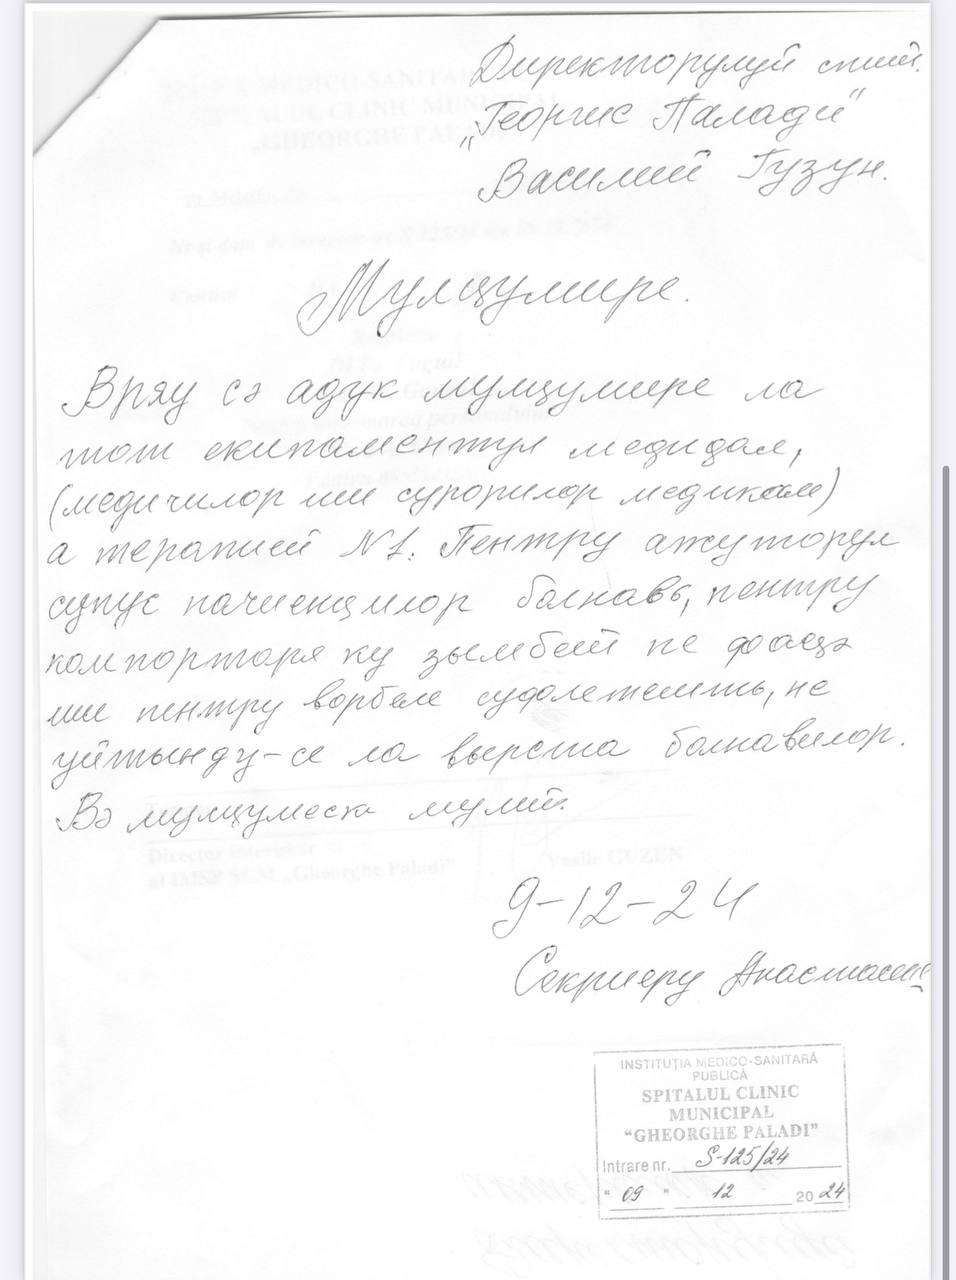 Директорулуй спит.
„Георгис Палади"
Василий Гузун.
Мулцумире.
Вряу сэ адук мулцумире ла
тот екипаментул медидал,
(медичилор ши сурорилор медикале)
а терапией N1. Пентру ажуторул
супус пачиенцилор болнавь, пентру
компортаря ку зымбей пе фаца
ши пентру ворбеле суфлетешть, не
уйтынду-се ла вырста болнавилор.
Вэ мулцумеск мулт.
9-12-24
Секриеру Анастасия
INSTITUȚIA MEDICO-SANITARĂ
PUBLICĂ
SPITALUL CLINIC
MUNICIPAL
"GHEORGHE PALADI"
Intrare nr. S-125/24
"09" 12 2024
Director interimar
al IMSP SCM „Gheorghe Paladi" Vasile GUZUN